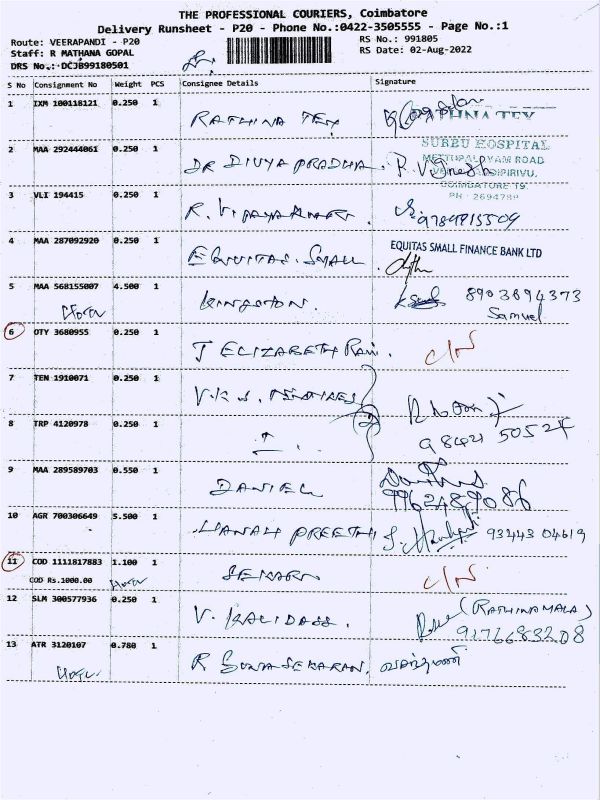 THE PROFESSIONAL COURIERS, Coimbatore
Delivery Runsheet - P20 - Phone No.:0422-3505555 - Page No.:1
Route: VEERAPANDI - P20
RS No.: 991805
Staff: R MATHANA GOPAL
RS Date: 02-Aug-2022
DRS No.: DCJB99180501
S No Consignment No Weight PCS Consignee Details Signature
1 IXM 100118121 0.250 1 RATHINA TEX
2 MAA 292444061 0.250 1 DR DIVYA PRADHA. R. Vignesh
SURBU HOSPITAL
METTUPALAYAM ROAD
COIMBATORE 19.
3 VLI 194415 0.250 1 R. VIJAYAKUMAR. 9789815509
4 MAA 287092920 0.250 1 EQUITAS. SMALL EQUITAS SMALL FINANCE BANK LTD
5 MAA 568155007 4.500 1 KINGSTON. 8903894373
Samuel
6 OTY 3680955 0.250 1 J ELIZABETH RANI. C/N
7 TEN 1910071 0.250 1 V.K.S.
8 TRP 4120978 0.250 1 98421 50524
9 MAA 289589703 0.550 1 DANIEL 9962489086
10 AGR 700306649 5.500 1 HANAH PREETHI 93443 04619
11 COD 1111817883 1.100 1 SEKARN C/N
COD Rs.1000.00
12 SLM 300577936 0.250 1 V. KALIDASS. (RATHINAMALA)
9176683208
13 ATR 3120107 0.780 1 R GUNASEKARAN.